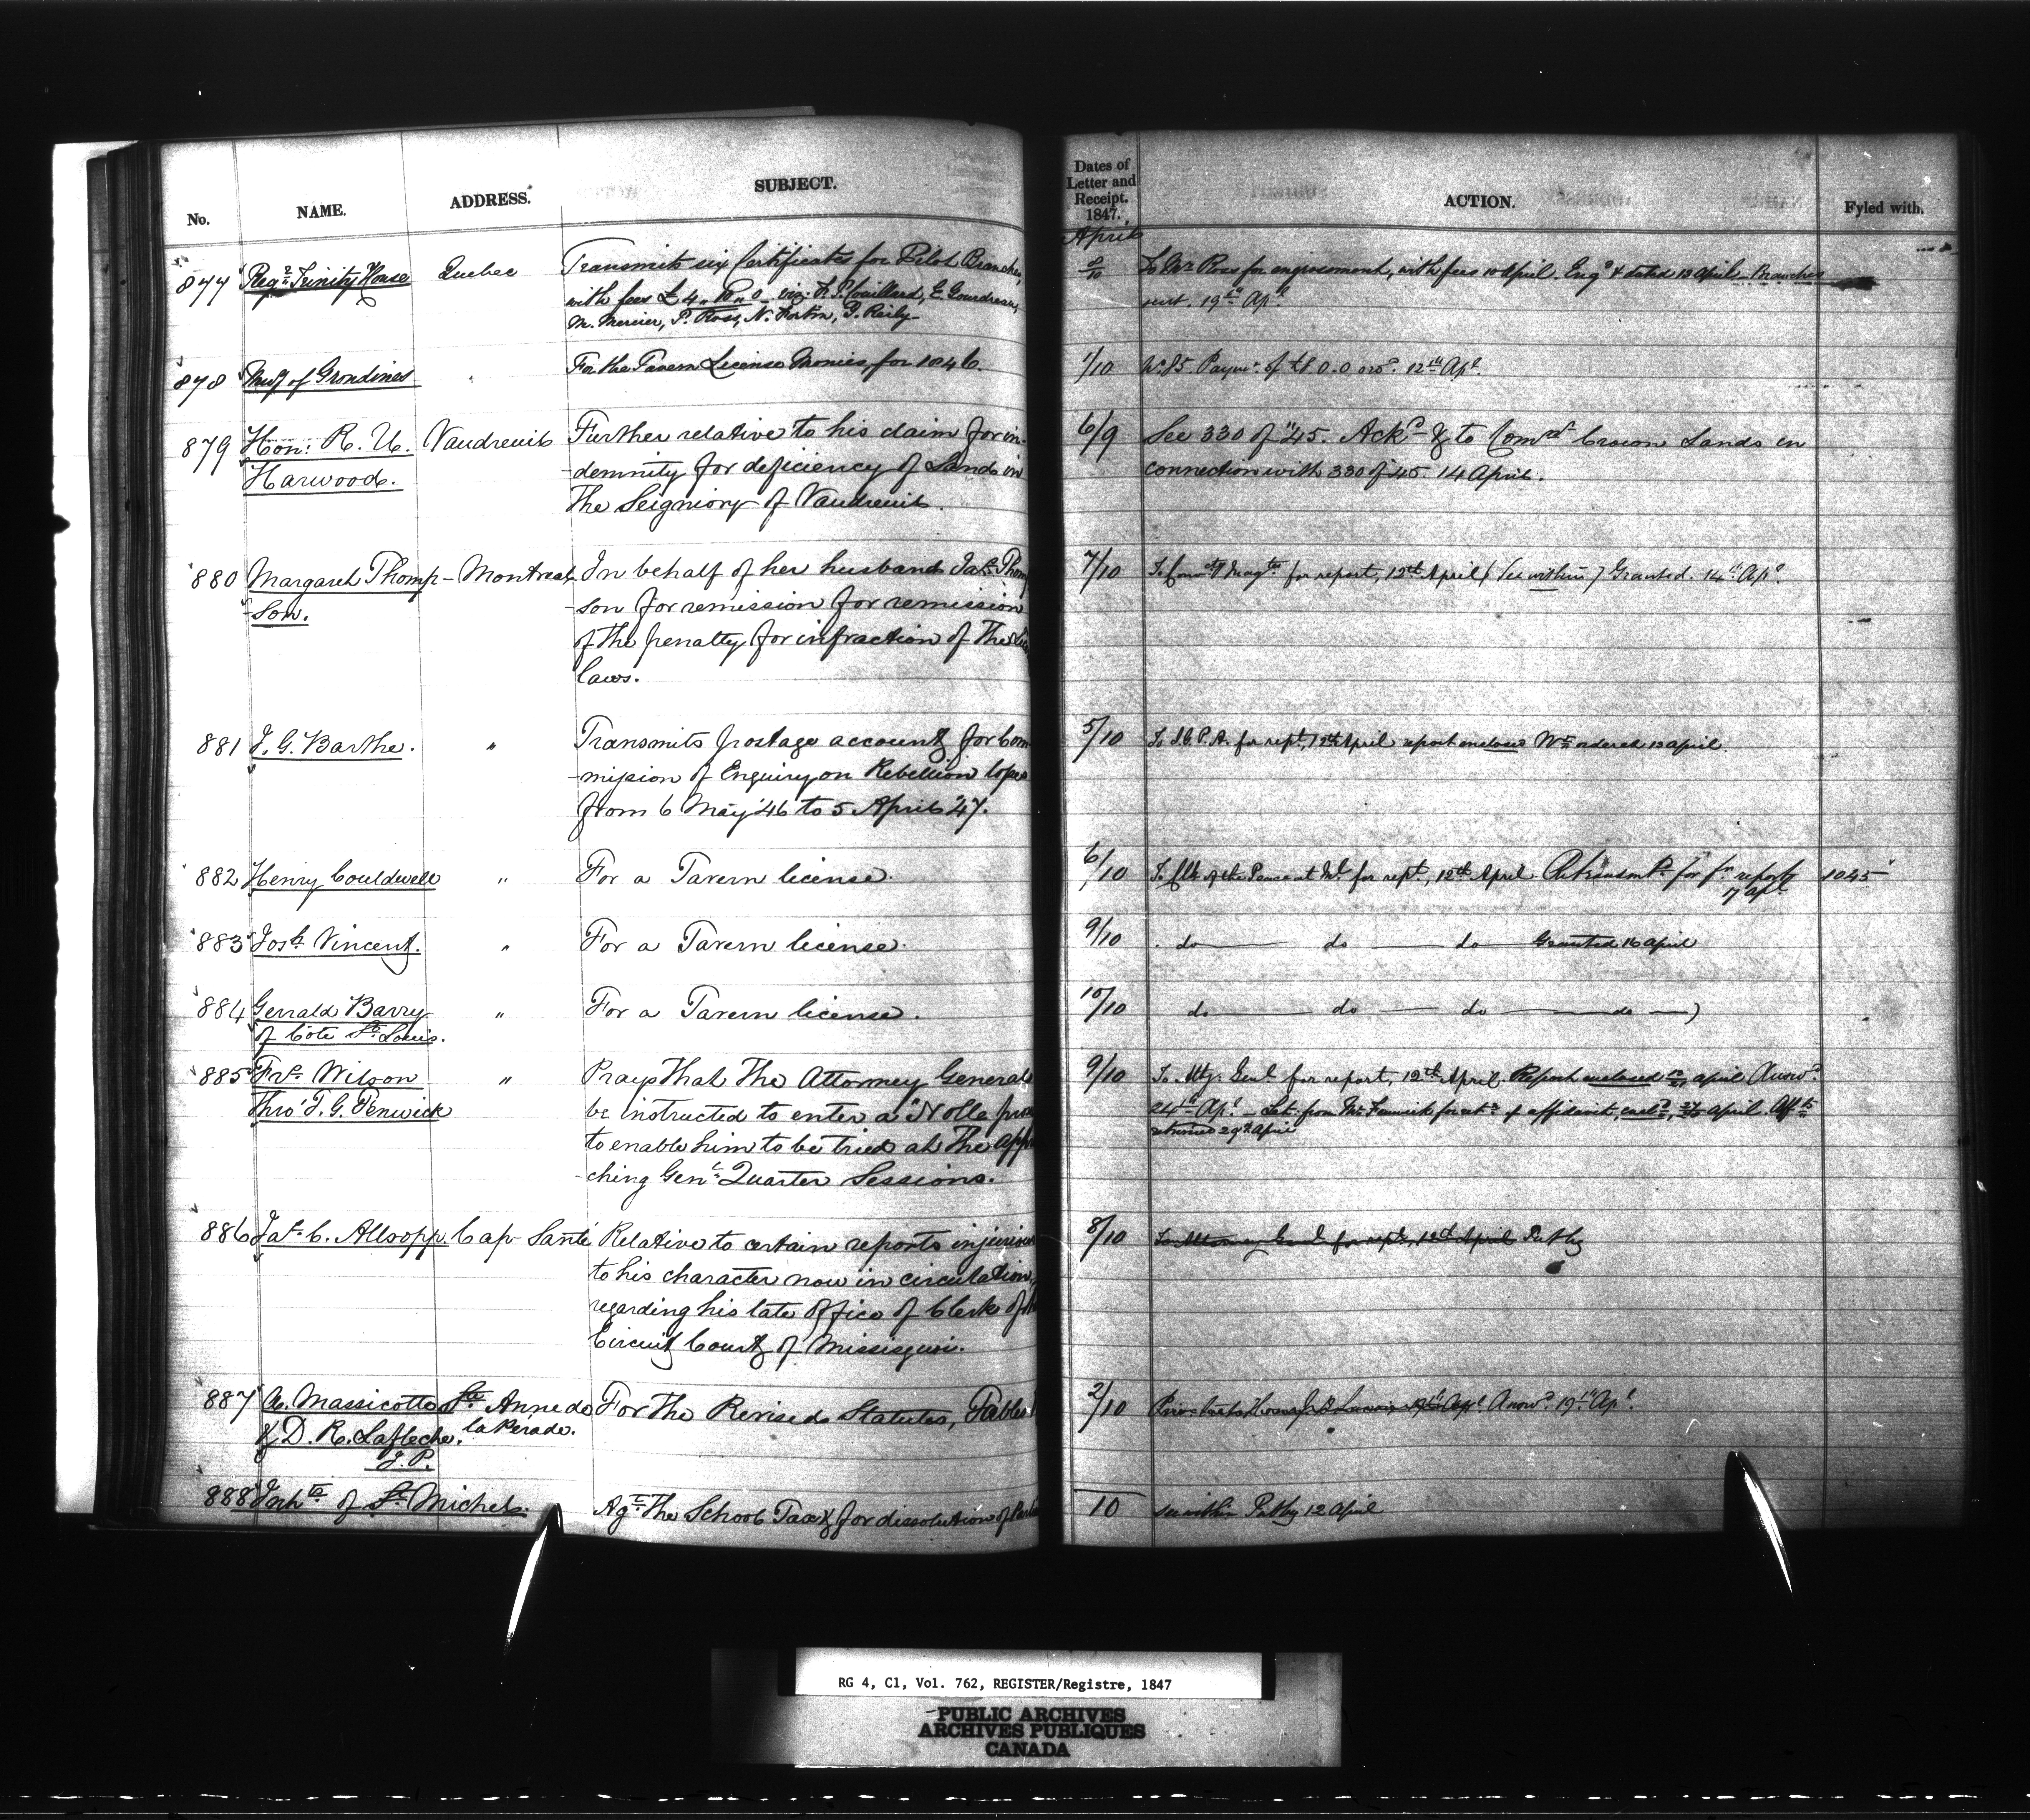 No. NAME. ADDRESS. SUBJECT.
877 Regr Trinity House Quebec Transmits six Certificates for Pilot Branches,
with fees £4,,10,,0 viz: F. P. Couillard, E. Gourdreau,
M. Mercier, P. Ross, N. Fortin, P. Reily
878 Muny of Grondines For the Tavern License Monies for 1846.
879 Hon: R. U. Vaudreuil Further relative to his claim for in-
Harwood. -demnity for deficiency of Lands in
the Seigniory of Vaudreuil.
880 Margaret Thomp- Montreal In behalf of her husband Jas. Thomp
-son. -son for remission for remission
of the penalty for infraction of the
laws.
881 J. G. Barthe. " Transmits postage account for Com
-mission of Enquiry on Rebellion losses
from 6 May '46 to 5 April '47.
882 Henry Couldwell " For a Tavern license.
883 Josh Vincent. " For a Tavern license.
884 Gerrald Barry " For a Tavern license.
of Côte St. Louis.
885 Frs. Wilson " Prays that the Attorney General
thro' T. G. Penwick be instructed to enter a "Nolle pros
to enable him to be tried at the appr
-ching Genl. Quarter Sessions.
886 Jas. C. Allsopp. Cap Santé Relative to certain reports injurious
to his character now in circulation,
regarding his late office of Clerk of
Circuit Court of Missisquoi.
887 A. Massicotte St. Anne de For the Revised Statutes, Tables
& D. R. Lafleche. la Pérade.
J. P.
888 Inhts of St. Michel. Agt the School Tax & for dissolution of
Dates of
Letter and
Receipt.
1847.
ACTION. Fyled with.
April
8/10 To Mr Ross for engrossment, with fees 10 April. Engd & dated 13 April - Branches
sent. 19th Apl
1/10 Wt 85. Paymt of £8.0.0 ord. 12th Apl.
6/9 See 330 of "45. Ackd & to Comr Crown Lands in
connection with 330 of 45. 14 April.
7/10 for report, 12th April (See within) Granted. 14th Apl.
5/10 To I. G. P. A. for rept, 12th April report enclosed Wt ordered 13 april.
6/10 To Clk of the Peace at Ml. for rept, 12th April. Retransmd for fr report 1045
17 apl
9/10 do do do Granted 16 april
10/10 do do do do
9/10 To Atty. Genl for report, 12th April. Report enclosed april Answd
24th Apl. Let. from Mr Fenwick for retn of affidavit, encd, april. Affts
returned 29th April
8/10 To Attorney Genl for rept, 12th April Put by
2/10 Answd 19th Apl.
10 see within Put by 12 April
RG 4, C1, Vol. 762, REGISTER/Registre, 1847
PUBLIC ARCHIVES
ARCHIVES PUBLIQUES
CANADA